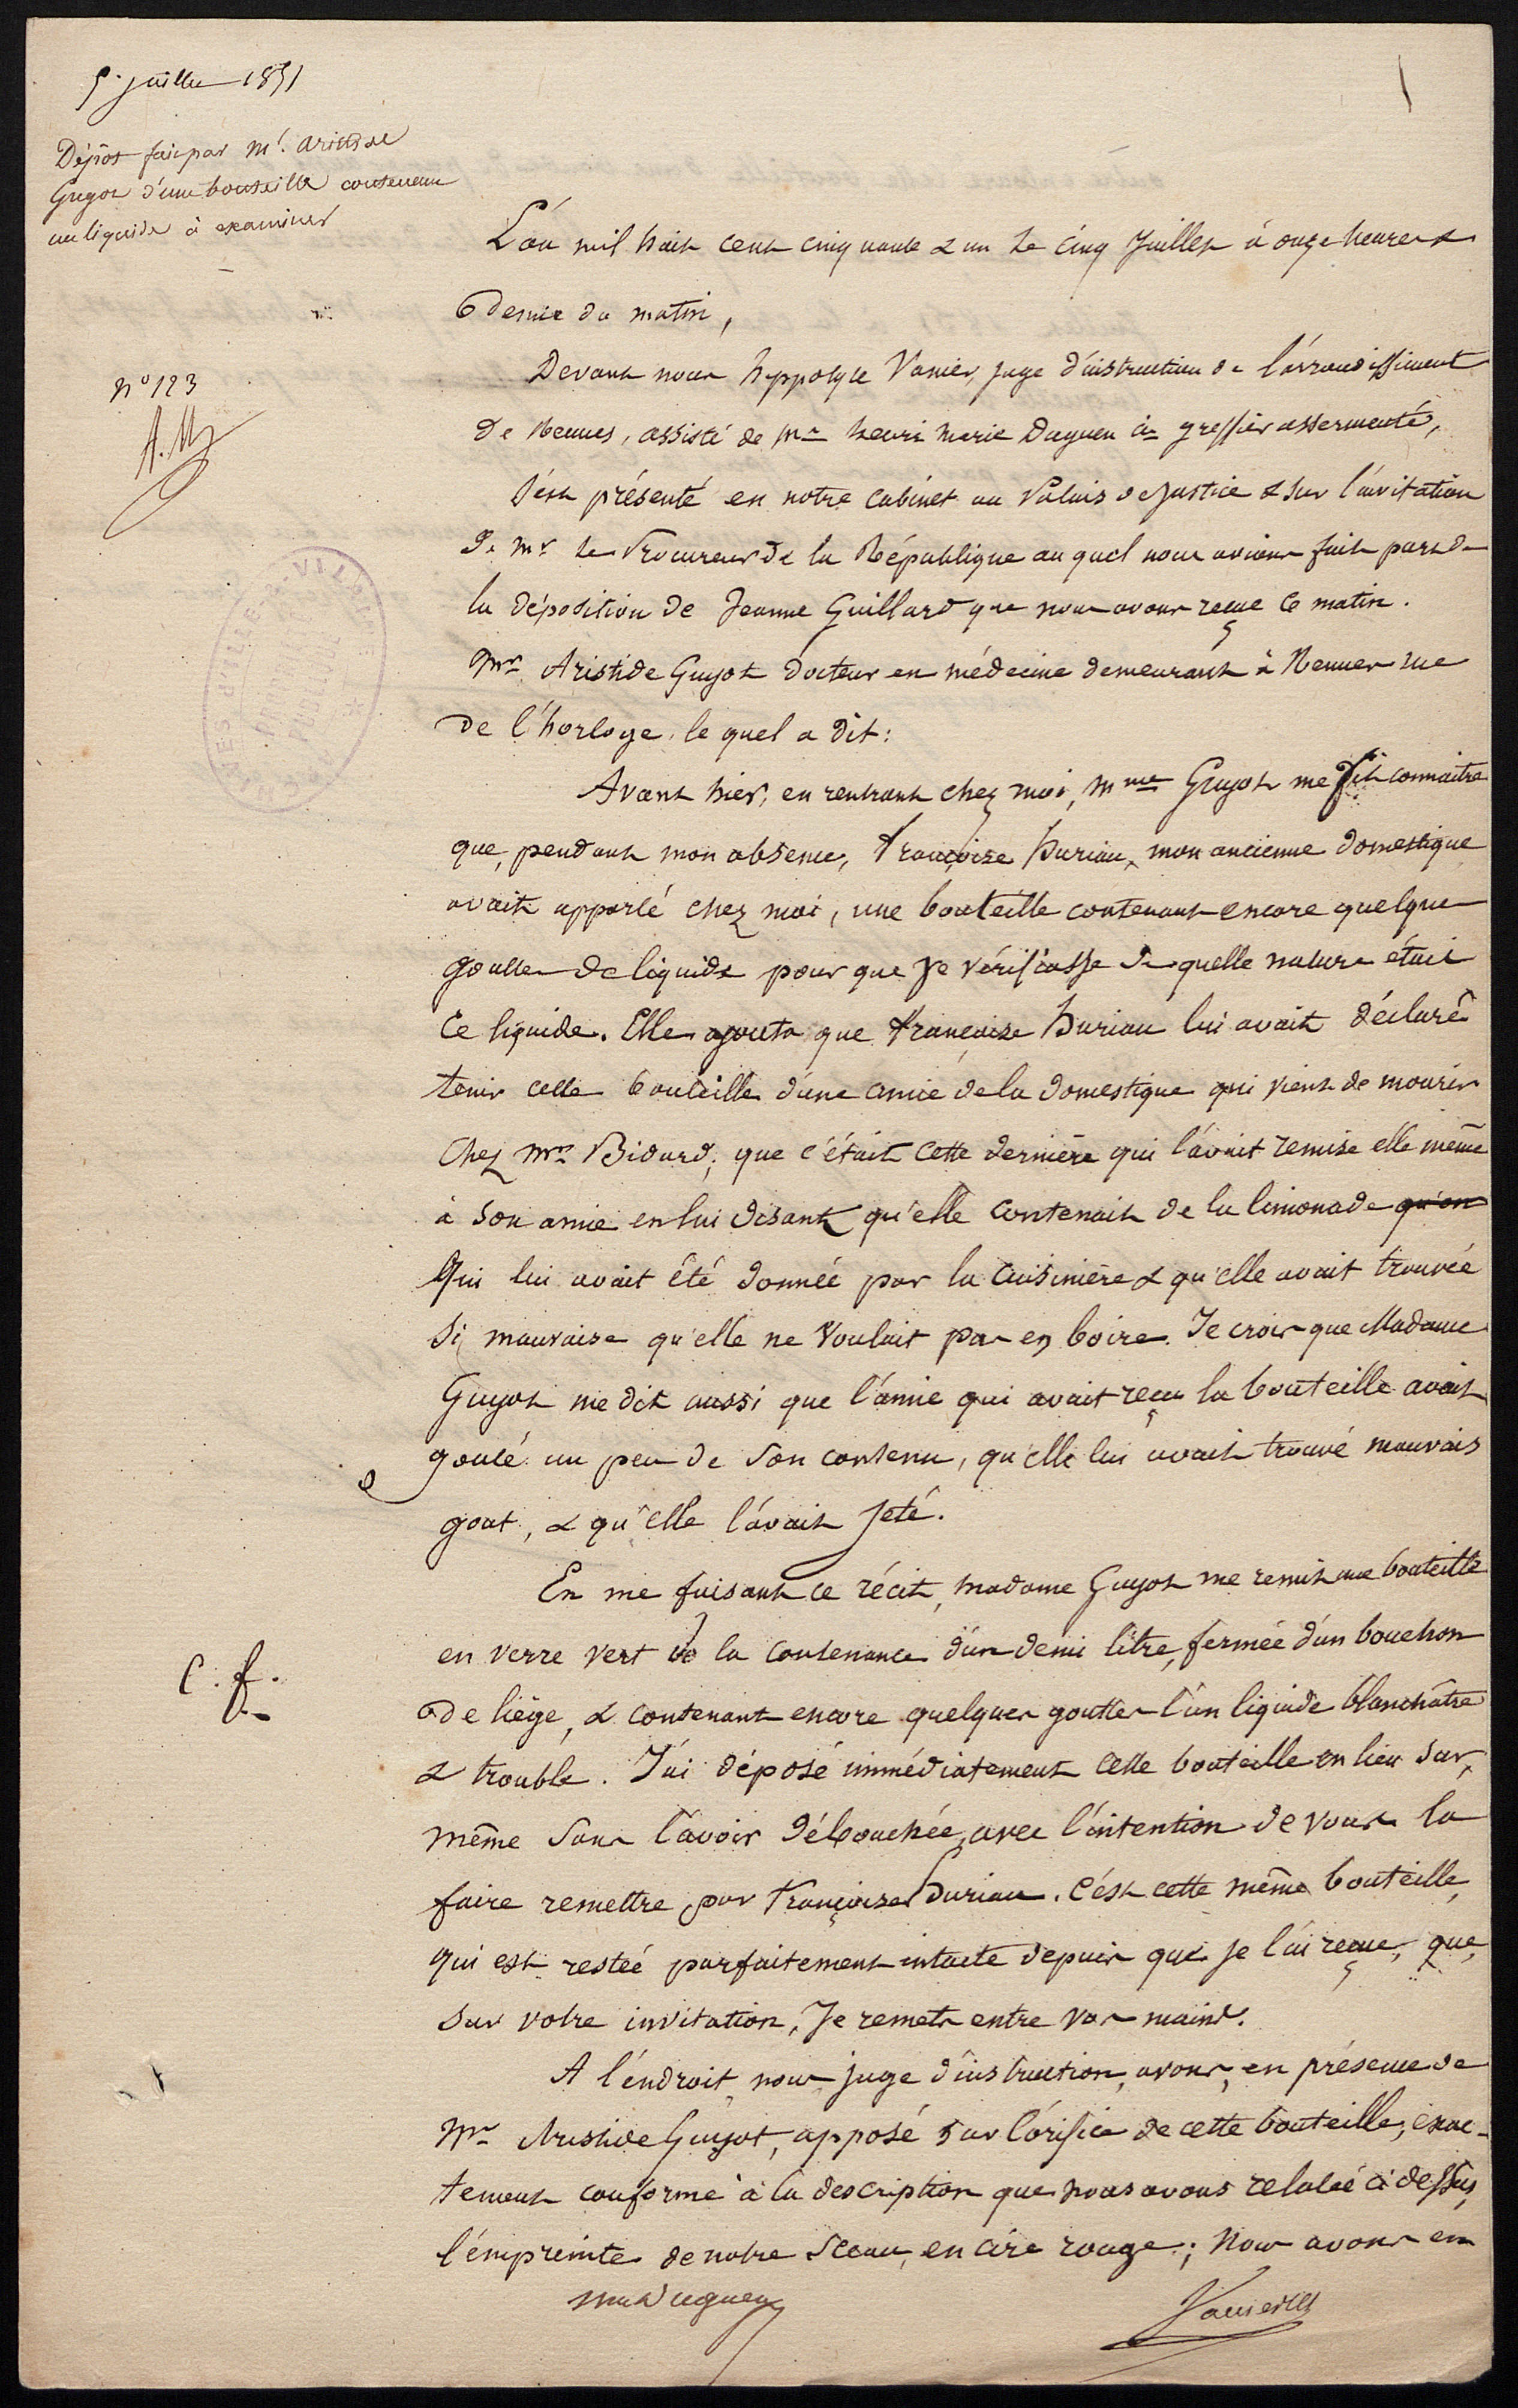 5 juillet 1851
Dépôt fait par Mr. Aristide
Guyot d'une bouteille contenant
un liquide à examiner
L'an mil huit cent cinquante & un le cinq Juillet à onze heures &
demie du matin,
n° 123
Devant nous hyppolyte Vannier, juge d'instruction de l'arrondissement
de Rennes, assisté de Mr henri Marie Duguen cis greffier assermenté,
S'est présenté en notre cabinet au Palais de Justice & sur l'invitation
de Mr le Procureur de la République au quel nous avions fait part de
la déposition de Jeanne Guillard que nous avons reçue ce matin.
Mr Aristide Guyot docteur en médecine demeurant à Rennes rue
de l'horloge, le quel a dit:
Avant hier, en rentrant chez moi, Mme Guyot me fit connaitre
que, pendant mon absence, Françoise huriau, mon ancienne domestique
avait apporté chez moi, une bouteille contenant encore quelque
goutte de liquide pour que je vérifiasse de quelle nature était
ce liquide. Elle ajouta que Françoise huriau lui avait déclaré
tenir cette bouteille d'une amie de la domestique qui vient de mourir
chez Mr Bidard; que c'était cette dernière qui l'avait remise elle même
à son amie en lui disant qu'elle contenait de la limonade qu'on
qui lui avait été donnée par la cuisinière & qu'elle avait trouvée
si mauvaise qu'elle ne voulait pas en boire. Je crois que Madame
Guyot me dit aussi que l'amie qui avait reçu la bouteille avait
gouté un peu de son contenu, qu'elle lui avait trouvé mauvais
gout, & qu'elle l'avait jeté.
En me faisant ce récit, madame Guyot me remit une bouteille
en verre vert de la contenance d'un demi litre, fermée d'un bouchon
C. f.
de liège, & contenant encore quelques gouttes d'un liquide blanchâtre
& trouble. J'ai déposé immédiatement cette bouteille en lieu sur,
même sans l'avoir débouchée, avec l'intention de vous la
faire remettre par Françoise huriau. C'est cette même bouteille,
qui est restée parfaitement intacte depuis que je l'ai reçue, que,
sur votre invitation, Je remets entre vos mains.
A l'endroit, nous juge d'instruction, avons, en présence de
Mr Aristide Guyot, apposé sur l'orifice de cette bouteille, exac-
tement conforme à la description que nous avons relatée ci dessus,
l'empreinte de notre sceau, en cire rouge; Nous avons en
Duguen
Vannier